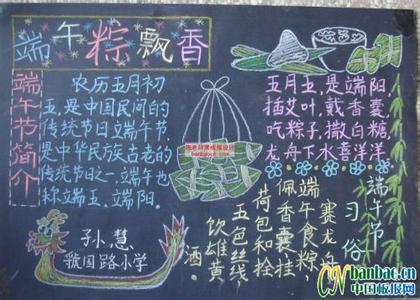 端午粽飘香
端午节简介
农历五月初
五,是中国民间的
传统节日端午节,
是中华民族古老的
传统节日之一。端午也
称端五,端阳。
五月五,是端阳,
插艾叶,戴香囊,
吃粽子,撒白糖,
龙舟下水喜洋洋
端午节习俗
赛龙舟
端午食粽
佩香囊,挂
荷包和拴
五色丝线
饮雄黄
酒。
孙慧
虢国路小学
CNbanbao.cn
中国板报网